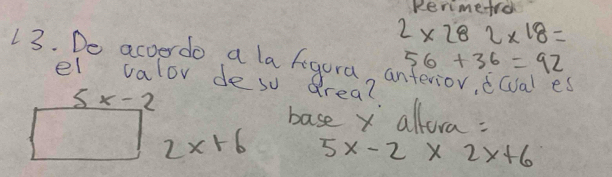 Perimetro
2 x 28 2 x 18 =
56 + 36 = 92
13. De acuerdo a la figura anterior, ¿cual es
el valor de su área?
5x-2
2x+6
base x altura =
5x-2 x 2x+6